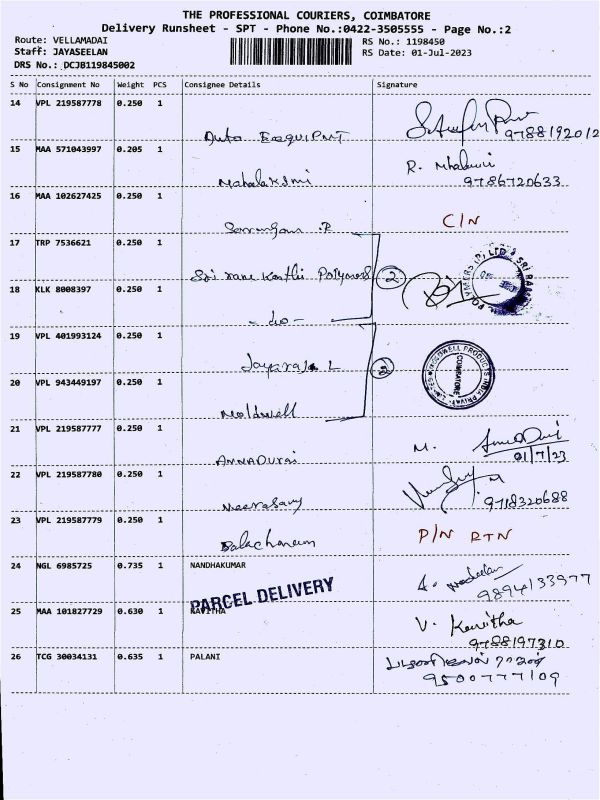 THE PROFESSIONAL COURIERS, COIMBATORE
Delivery Runsheet - SPT - Phone No.:0422-3505555 - Page No.:2
Route: VELLAMADAI
RS No.: 1198450
Staff: JAYASEELAN
RS Date: 01-Jul-2023
DRS No.: DCJB119845002
S No Consignment No Weight PCS Consignee Details Signature
14 VPL 219587778 0.250 1
Auto EEQUIPMT 9788192012
15 MAA 571043997 0.205 1
R.
Mahalakshmi 9786720633
16 MAA 102627425 0.250 1
C/N
17 TRP 7536621 0.250 1
Polymers 2
POLYMERS (P) LTD SRI
18 KLK 8008397 0.250 1
- do -
19 VPL 401993124 0.250 1
Jayaraja L
20 VPL 943449197 0.250 1
COIMBATORE
Moldwell
21 VPL 219587777 0.250 1
M.
ANNADURAI 01/7/23
22 VPL 219587780 0.250 1
Meerasamy 9718320688
23 VPL 219587779 0.250 1
P/N RTN
24 NGL 6985725 0.735 1 NANDHAKUMAR
9894133977
PARCEL DELIVERY
25 MAA 101827729 0.630 1 KAVITHA
V. Kavitha
9788197310
26 TCG 30034131 0.635 1 PALANI
9500777109